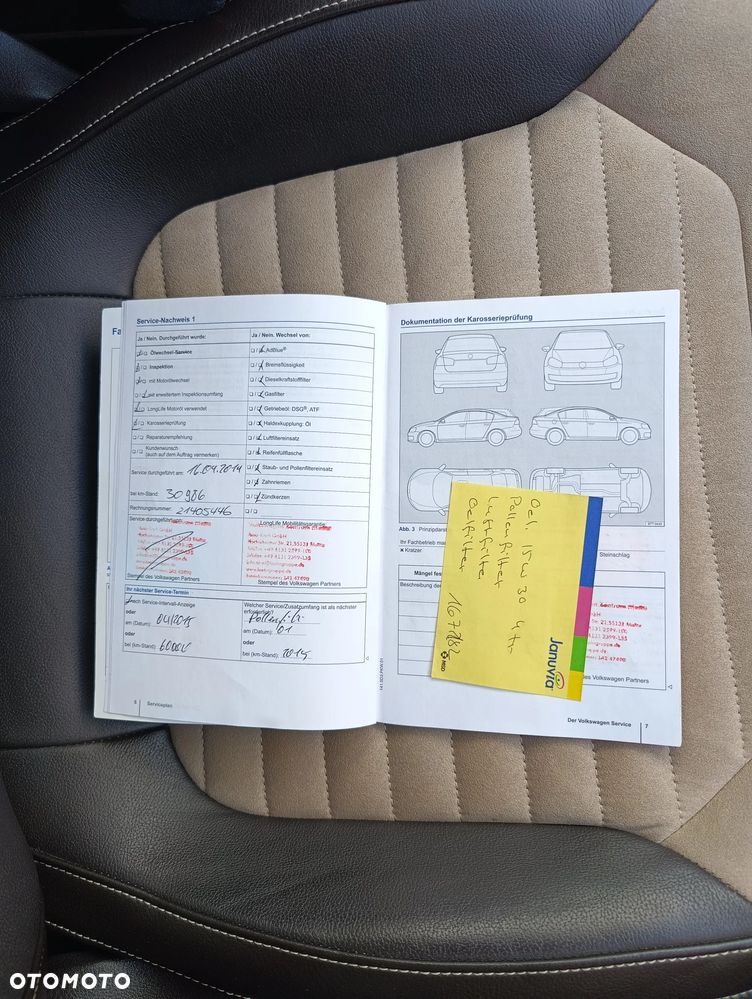 Fa
Service-Nachweis 1
Ja / Nein. Durchgeführt wurde:
Ja / Nein. Wechsel von:
Ölwechsel-Service
AdBlue®
Inspektion
Bremsflüssigkeit
mit Motorölwechsel
Dieselkraftstofffilter
mit erweitertem Inspektionsumfang
Gasfilter
LongLife Motoröl verwendet
Getriebeöl: DSG®, ATF
Karosserieprüfung
Haldexkupplung: Öl
Reparaturempfehlung
Luftfiltereinsatz
Kundenwunsch
(auch auf dem Auftrag vermerken)
Reifenfüllflasche
Service durchgeführt am: 16.04.2014
Staub- und Pollenfiltereinsatz
bei km-Stand: 30986
Zahnriemen
Rechnungsnummer: 21405446
Zündkerzen
Service durchgeführt
LongLife Mobilitätsgarantie
Stempel des Volkswagen Partners
Stempel des Volkswagen Partners
Ihr nächster Service-Termin
nach Service-Intervall-Anzeige
oder
am (Datum): 04/2015
oder
bei (km-Stand): 60000
Welcher Service/Zusatzumfang ist als nächster
erforderlich?
am (Datum): 01
oder
bei (km-Stand): 2015
6
Serviceplan
Dokumentation der Karosserieprüfung
Abb. 3
Ihr Fachbetrieb
Kratzer
Steinschlag
Mängel
Beschreibung der
des Volkswagen Partners
Der Volkswagen Service
7
Oel 15W30 4 ltr
Pollenfilter
Luftfilter
Oelfilter
167182
Januvia
MSD
OTOMOTO